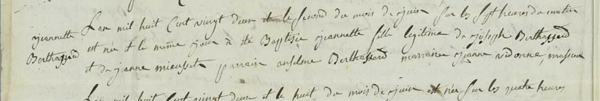 L'an mil huit Cent vingt deux et le second du mois de juin sur les sept heures du matin
jeannette est née et le même jour a été Baptisée jeannette fille légitime de joseph Berthassard
Berthassard et de jeanne mieusset parrain anselme Berthassard marraine jeanne
L'an mil huit Cent vingt deux et le huit du mois de juin est née sur les quatre heures